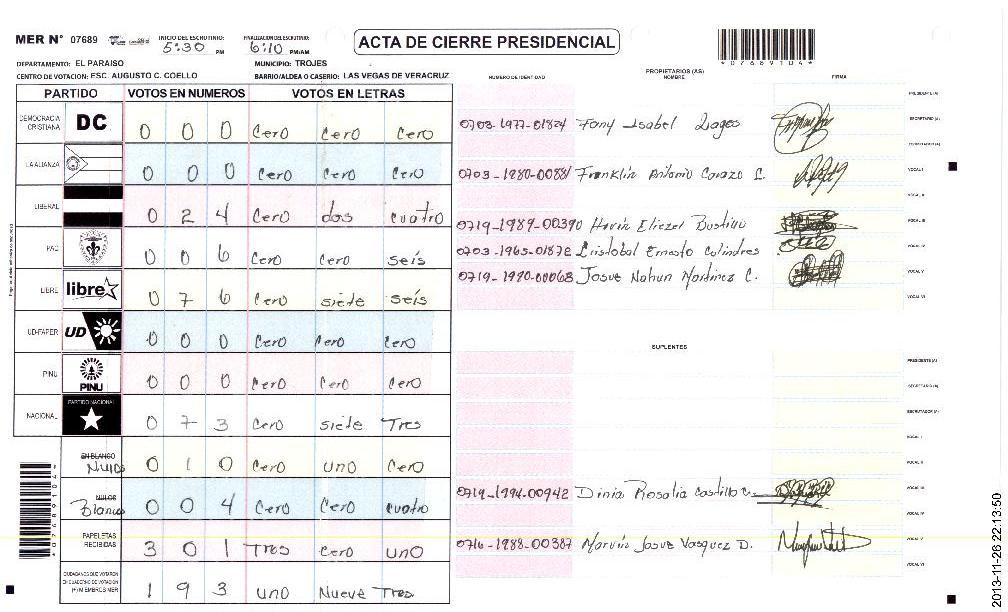 MER N° 07689
INICIO DEL ESCRUTINIO: 5:30 PM
FINALIZACION DEL ESCRUTINIO: 6:10 PM/AM
ACTA DE CIERRE PRESIDENCIAL
*07689104*
DEPARTAMENTO: EL PARAISO
MUNICIPIO: TROJES
CENTRO DE VOTACION: ESC. AUGUSTO C. COELLO
BARRIO/ALDEA O CASERIO: LAS VEGAS DE VERACRUZ
PARTIDO VOTOS EN NUMEROS VOTOS EN LETRAS
DEMOCRACIA CRISTIANA DC 0 0 0 Cero Cero Cero
LA ALIANZA 0 0 0 Cero Cero Cero
LIBERAL 0 2 4 Cero dos cuatro
PAC 0 0 6 Cero Cero seis
LIBRE libre 0 7 6 Cero siete seis
UD-FAPER UD 0 0 0 Cero Cero Cero
PINU PINU 0 0 0 Cero Cero Cero
NACIONAL PARTIDO NACIONAL 0 7 3 Cero siete Tres
EN BLANCO Nulos 0 1 0 Cero uno Cero
NULOS Blanco 0 0 4 Cero Cero cuatro
PAPELETAS RECIBIDAS 3 0 1 Tres Cero uno
CIUDADANOS QUE VOTARON EN CUADERNO DE VOTACION (+) MIEMBROS MER 1 9 3 uno Nueve Tres
*07689104*
PROPIETARIOS (AS)
NUMERO DE IDENTIDAD NOMBRE FIRMA
PRESIDENTE (A)
SECRETARIO (A)
0703-1977-01824 Fany Isabel Lagos
ESCRUTADOR (A)
VOCAL I
0703-1980-00881 Franklin Antonio Carazo L.
VOCAL II
VOCAL III
0719-1989-00390 Eliezel Bustino
VOCAL IV
0703-1965-01872 Cristobal Ernesto Colindres
VOCAL V
0719-1990-00068 Josue Nahun Martinez C.
VOCAL VI
SUPLENTES
PRESIDENTE (A)
SECRETARIO (A)
ESCRUTADOR (A)
VOCAL I
VOCAL II
VOCAL III
0719-1994-00942 Dinia Rosalia Castillo C.
VOCAL IV
VOCAL V
0716-1988-00387 Marvin Josue Vasquez D.
VOCAL VI
2013-11-26 22:13:50